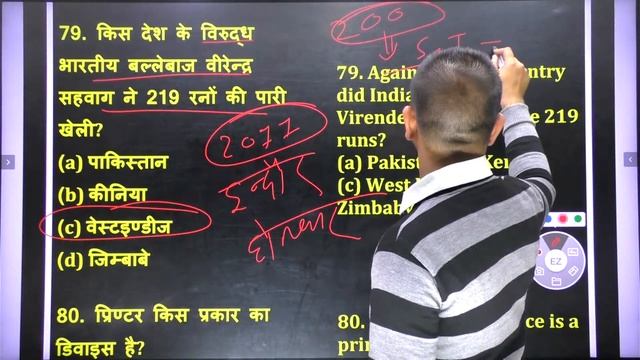 79. किस देश के विरुद्ध
भारतीय बल्लेबाज वीरेन्द्र
सहवाग ने 219 रनों की पारी
खेली?
(a) पाकिस्तान
(b) कीनिया
(c) वेस्टइण्डीज
(d) जिम्बाबे
80. प्रिण्टर किस प्रकार का
डिवाइस है?
200
2011
इन्दौर
होल्कर
79. Again ntry
did India
Virende e 219
runs?
(a) Pakist Ken
(c) West
Zimbab
80. ce is a
prin
EZ